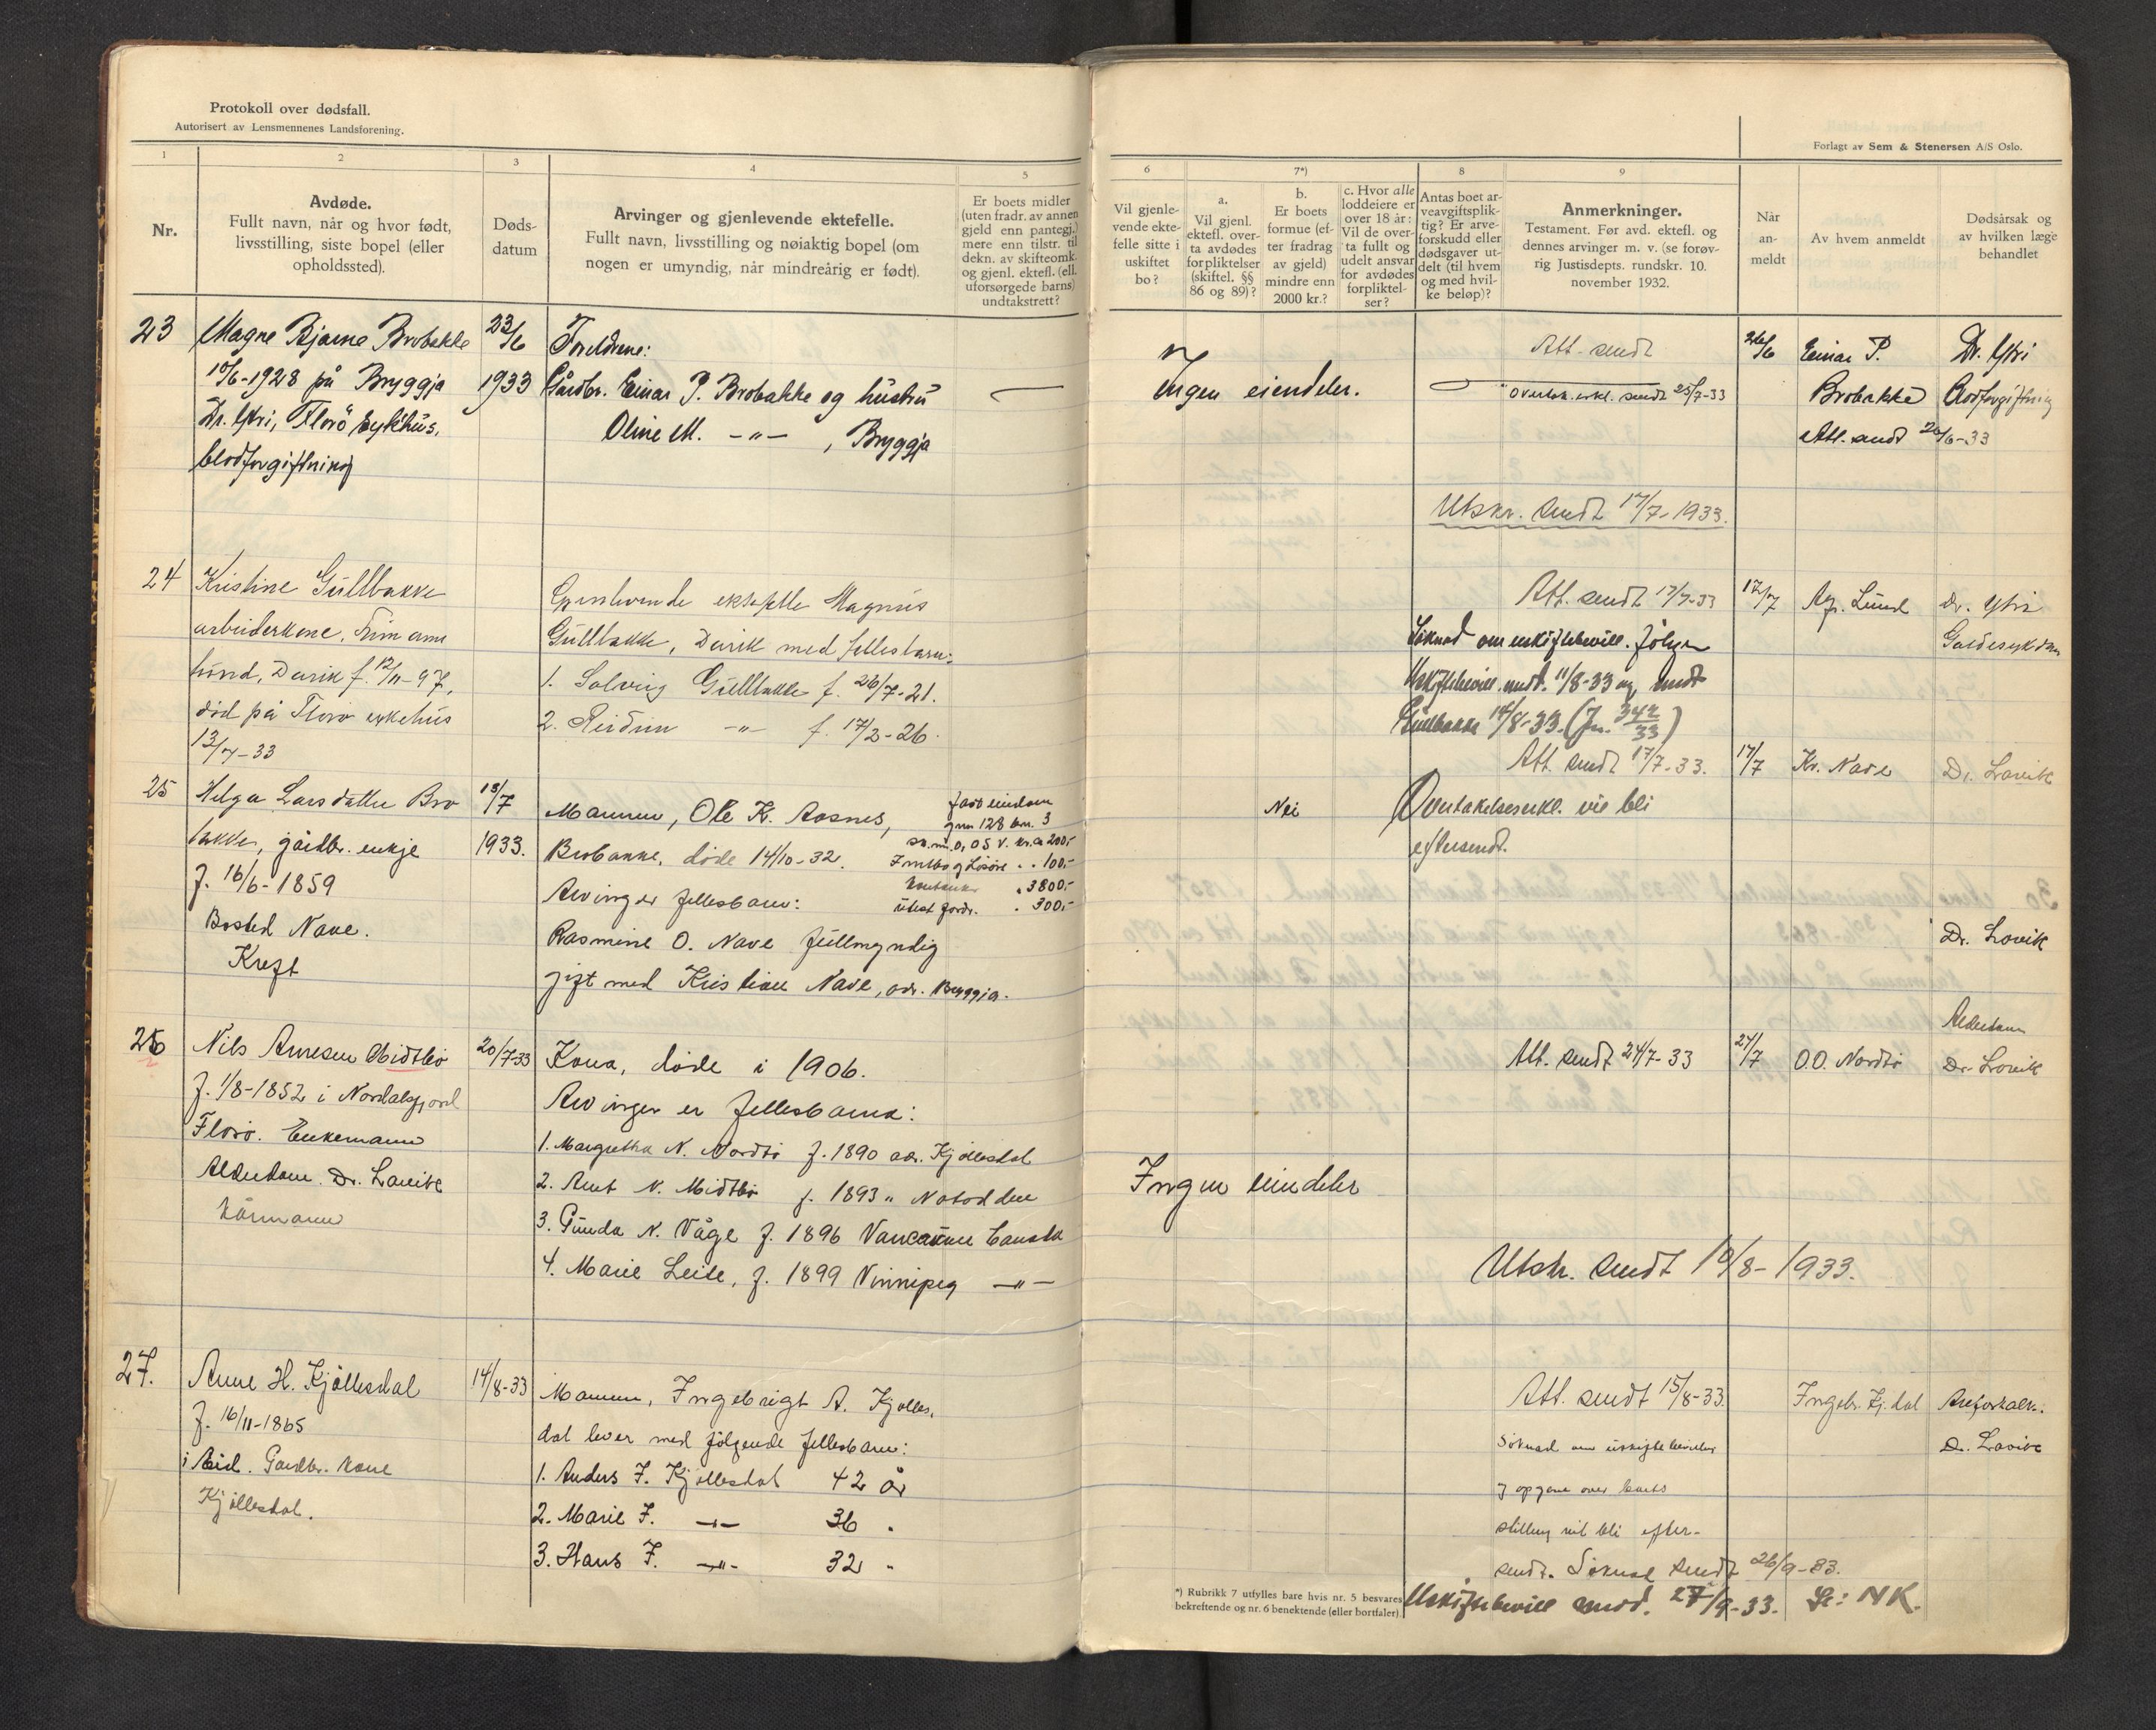 Protokoll over dødsfall.
Autorisert av Lensmennenes Landsforening.
1
2
3
4
5
Nr.
Avdøde.
Fullt navn, når og hvor født,
livsstilling, siste bopel (eller
opholdssted).
Døds-
datum
Arvinger og gjenlevende ektefelle.
Fullt navn, livsstilling og nøiaktig bopel (om
nogen er umyndig, når mindreårig er født).
Er boets midler
(uten fradr. av annen
gjeld enn pantegj.)
mere enn tilstr. til
dekn. av skifteomk.
og gjenl. ektefl. (ell.
uforsørgede barns)
undtakstrett?
23
Magne Bjarne Brobakke
10/6-1928 på Bryggja
Dr. Ytri, Florö sykehus,
blodforgiftning
23/6
1933
Foreldrene:
Gårdbr. Einar P. Brobakke og hustru
Oline M. -"- , Bryggja
24
Kristine Gullbakke
arbeiderkone,
Davik f. 12/11-97,
død på Florö sykehus
13/7-33
Gjenlevende ektefelle Magnus
Gullbakke, Davik med fellesbarn:
1. Solveig Gullbakke f. 26/7-21.
2. Reidun -"- f. 17/2-26.
25
Helga Larsdatter Bro
bakke, gårdbr. enkje
f. 16/6-1859
Bosted Nave.
Kreft
18/7
1933.
Mannen, Ole K. Aasnes,
Brobakke, döde 14/10-32.
Arving er fellesbarn:
Rasmine O. Nave fullmyndig
gift med Kristian Nave, adr. Bryggja.
Fast eiendom
gnr 128 bnr. 3
sk. m. 0,05 v. kr. ca 200,-
Innbo og Lösöre " " 100,-
" 3800,-
Utest. fordr. " 300,-
26
Nils Antesen Midtbö
f. 1/8-1852 i Nordalsfjord
Florö. Enkemann
Alderdom. Dr. Lavik
Kårmann
20/7-33
Kona, döde i 1906.
Arvinger er fellesbarna:
1. Margretha N. Nordbö f. 1890 adr. Kjöllesdal
2. Ant N. Midtbö f. 1893 " Notodden
3. Gunda N. Våge f. 1896 Vancauver Canada
4. Marie Leite, f. 1899 Vinnipeg -"-
27.
Anne H. Kjöllesdal
f. 16/11-1865
i Eid. Gardbr. kone
Kjöllesdal.
14/8-33
Mannen, Ingebrigt A. Kjölles.
dal lever med fölgende fellesbarn:
1. Anders I. Kjöllesdal 42 år
2. Marie I. -"- 36 "
3. Hans I. -"- 32 "
Forlagt av Sem & Stenersen A/S Oslo.
6
7*)
8
9
Vil gjenle-
vende ekte-
felle sitte i
uskiftet
bo?
a.
Vil gjenl.
ektefl. over-
ta avdødes
forpliktelser
(skiftel. §§
86 og 89)?
b.
Er boets
formue (ef-
ter fradrag
av gjeld)
mindre enn
2000 kr.?
c. Hvor alle
loddeiere er
over 18 år:
Vil de over-
ta fullt og
udelt ansvar
for avdødes
forpliktel-
ser?
Antas boet ar-
veavgiftsplik-
tig? Er arve-
forskudd eller
dødsgaver ut-
delt (til hvem
og med hvil-
ke beløp)?
Anmerkninger.
Testament. Før avd. ektefl. og
dennes arvinger m. v. (se forøv-
rig Justisdepts. rundskr. 10.
november 1932.
Når
an-
meldt
Av hvem anmeldt
Dødsårsak og
av hvilken læge
behandlet
Ingen eiendeler.
Att. sendt
Overtak. erkl. sendt 25/7-33
26/6
Einar P.
Brobakke
Att. sendt 26/6-33
Dr. Ytri
Blodforgiftning
Utskr. sendt 17/7-1933.
Att. sendt 17/7-33
17/7
Dr. Ytri
Galdesykdom
Söknad om uskiftebevill. fölger
Uskiftebevill. medt. 11/8-33 og sendt
Gullbakke 14/8-33. (Jn. 342/33)
Att. sendt 17/7-33.
17/7
Kr. Nave
Dr. Lavik
Nei
Overtakelseserkl. vil bli
eftersendt.
Dr. Lavik
Att. sendt 24/7-33
24/7
O.O. Nordbö
Alderdom
Dr. Lavik
Ingen eiendeler
Utskr. sendt 10/8-1933.
Att. sendt 15/8-33.
Ingebr. Kj.dal
Areforkalk.
Dr. Lavik
Söknad om uskiftebevilling
og opgave over boets
stilling vil bli efter-
sendt. Söknad sendt 26/9-33.
Uskiftebevill medt. 27/9-33.
*) Rubrikk 7 utfylles bare hvis nr. 5 besvares
bekreftende og nr. 6 benektende (eller bortfaler).